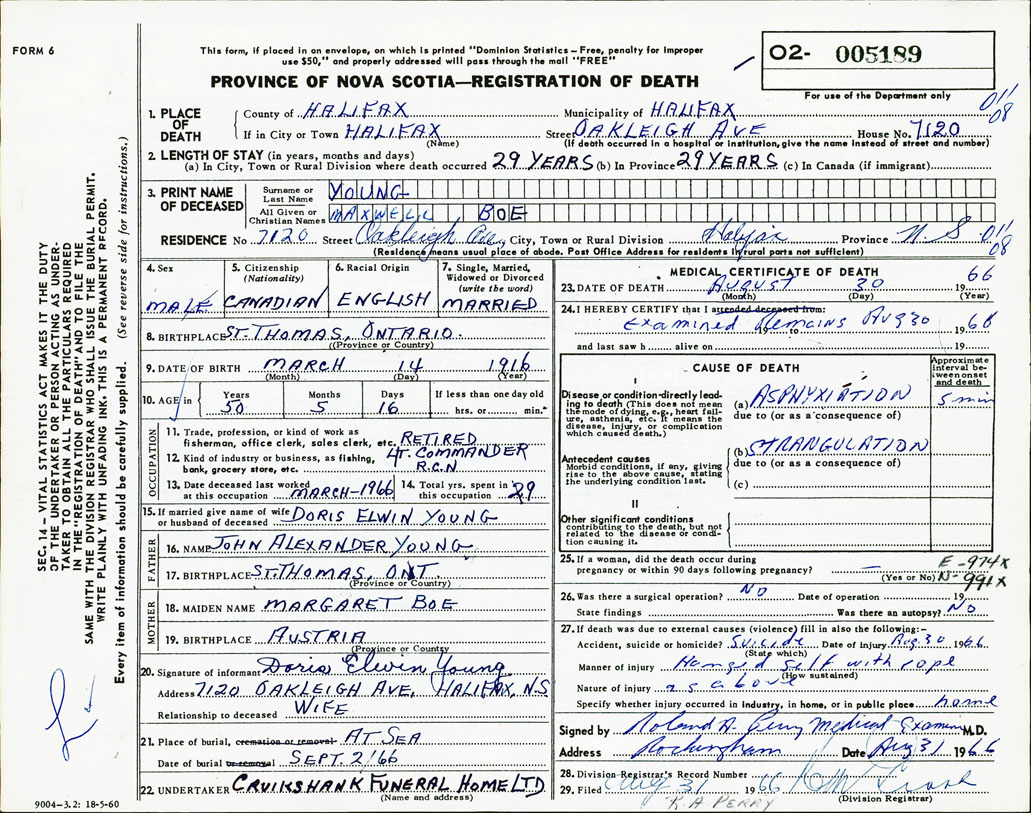 FORM 6
This form, if placed in an envelope, on which is printed "Dominion Statistics – Free, penalty for improper
use $50," and properly addressed will pass through the mail "FREE"
PROVINCE OF NOVA SCOTIA—REGISTRATION OF DEATH
02- 005189
For use of the Department only
011
08
1. PLACE OF DEATH
County of HALIFAX Municipality of HALIFAX
If in City or Town HALIFAX Street OAKLEIGH AVE House No. 7120
(Name) (If death occurred in a hospital or institution, give the name instead of street and number)
2. LENGTH OF STAY (in years, months and days)
(a) In City, Town or Rural Division where death occurred 29 YEARS (b) In Province 29 YEARS (c) In Canada (if immigrant)
3. PRINT NAME OF DECEASED
Surname or Last Name YOUNG
All Given or Christian Names MAXWELL BOE
RESIDENCE No 7120 Street Oakleigh Ave, City, Town or Rural Division Halifax Province N.S 011
08
(Residence means usual place of abode. Post Office Address for residents in rural parts not sufficient)
4. Sex
MALE
5. Citizenship (Nationality)
CANADIAN
6. Racial Origin
ENGLISH
7. Single, Married, Widowed or Divorced (write the word)
MARRIED
8. BIRTHPLACE ST. THOMAS, ONTARIO.
(Province or Country)
9. DATE OF BIRTH MARCH 14 1916
(Month) (Day) (Year)
10. AGE in Years 50 Months 5 Days 16 If less than one day old
hrs. or min.
OCCUPATION
11. Trade, profession, or kind of work as
fisherman, office clerk, sales clerk, etc. RETIRED
12. Kind of industry or business, as fishing, LT. COMMANDER
bank, grocery store, etc. R.C.N
13. Date deceased last worked at this occupation MARCH-1966
14. Total yrs. spent in this occupation 29
15. If married give name of wife or husband of deceased DORIS ELWIN YOUNG
FATHER
16. NAME JOHN ALEXANDER YOUNG
17. BIRTHPLACE ST. THOMAS, ONT.
(Province or Country)
MOTHER
18. MAIDEN NAME MARGARET BOE
19. BIRTHPLACE AUSTRIA
(Province or Country)
20. Signature of informant Doris Elwin Young
Address 7120 OAKLEIGH AVE, HALIFAX, N.S
Relationship to deceased WIFE
21. Place of burial, cremation or removal AT SEA
Date of burial or removal SEPT. 2/66
22. UNDERTAKER CRUIKSHANK FUNERAL HOME LTD
(Name and address)
MEDICAL CERTIFICATE OF DEATH
23. DATE OF DEATH AUGUST 30 66
(Month) (Day) (Year)
24. I HEREBY CERTIFY that I attended deceased from:
Examined Remains Aug 30 to 1966
and last saw h alive on 19
CAUSE OF DEATH
Approximate interval between onset and death
I
Disease or condition directly leading to death (This does not mean the mode of dying, e.g., heart failure, asthenia, etc. It means the disease, injury, or complication which caused death.)
(a) ASPHYXIATION 5 min
due to (or as a consequence of)
Antecedent causes
Morbid conditions, if any, giving rise to the above cause, stating the underlying condition last.
(b) STRANGULATION
due to (or as a consequence of)
(c)
II
Other significant conditions
contributing to the death, but not related to the disease or condition causing it.
25. If a woman, did the death occur during
pregnancy or within 90 days following pregnancy? —
(Yes or No)
E-974X
N-991X
26. Was there a surgical operation? NO Date of operation 19
State findings Was there an autopsy? NO
27. If death was due to external causes (violence) fill in also the following:–
Accident, suicide or homicide? Suicide Date of injury Aug. 30 1966
(State which)
Manner of injury Hanged self with rope
(How sustained)
Nature of injury as above
Specify whether injury occurred in industry, in home, or in public place home
Signed by Roland A. Perry Medical Examiner M.D.
Address Rockingham Date Aug 31 1966
28. Division Registrar's Record Number
29. Filed Aug 31 1966
(Division Registrar)
R A PERRY
SEC. 14 – VITAL STATISTICS ACT MAKES IT THE DUTY
OF THE UNDERTAKER OR PERSON ACTING AS UNDER-
TAKER TO OBTAIN ALL THE PARTICULARS REQUIRED
IN THE "REGISTRATION OF DEATH" AND TO FILE THE
SAME WITH THE DIVISION REGISTRAR WHO SHALL ISSUE THE BURIAL PERMIT.
WRITE PLAINLY WITH UNFADING INK. THIS IS A PERMANENT RECORD.
Every item of information should be carefully supplied. (See reverse side for instructions.)
9004-3.2: 18-5-60